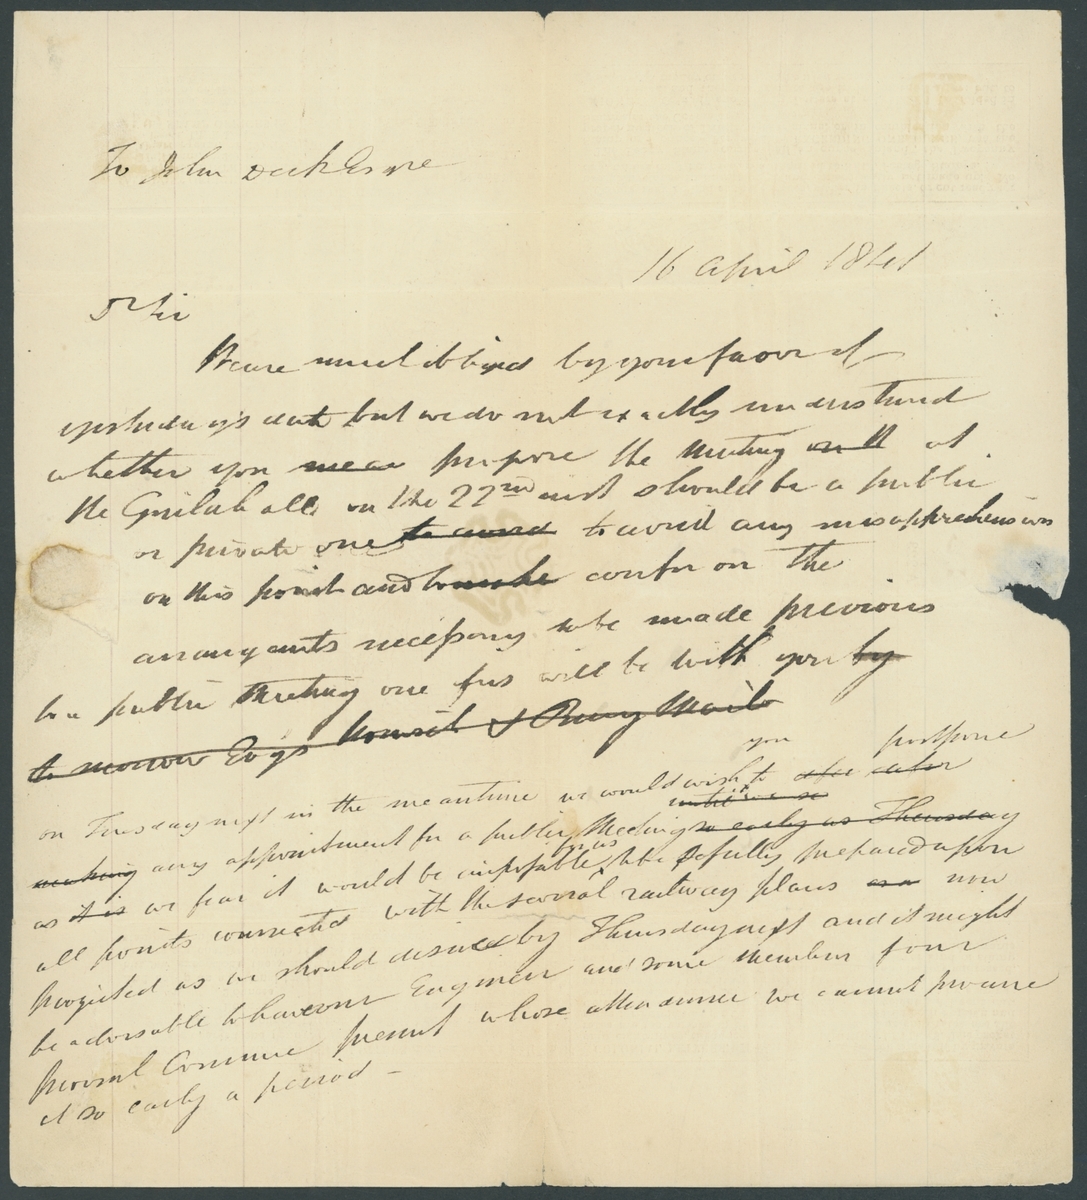 To John Deck Esqre
16 April 1841
Dr Sir
We are much obliged by your favor of
yesterday's date but we do not exactly understand
whether you mean propose the Meeting on th at
the Guildhall on the 22nd inst should be a public
or private one to avoid to avoid any misapprehension
on this point and to make confer on the
arrangemts necessary to be made previous
to a public Meeting one of us will be with you by
to morrow Evgs Norwich & Bury Mail
on Tuesday next in the meantime we would wish you to postpone
making any appointment for a public Meeting so early as Thursday
as it is we fear it would be impossible for us to be so fully prepared upon
all points connected with the several railway plans now
projected as we should desire by Thursday next and it might
be advisable to have our Engineer and some members of our
provsnl Committee present whose attendance we cannot procure
at so early a period -